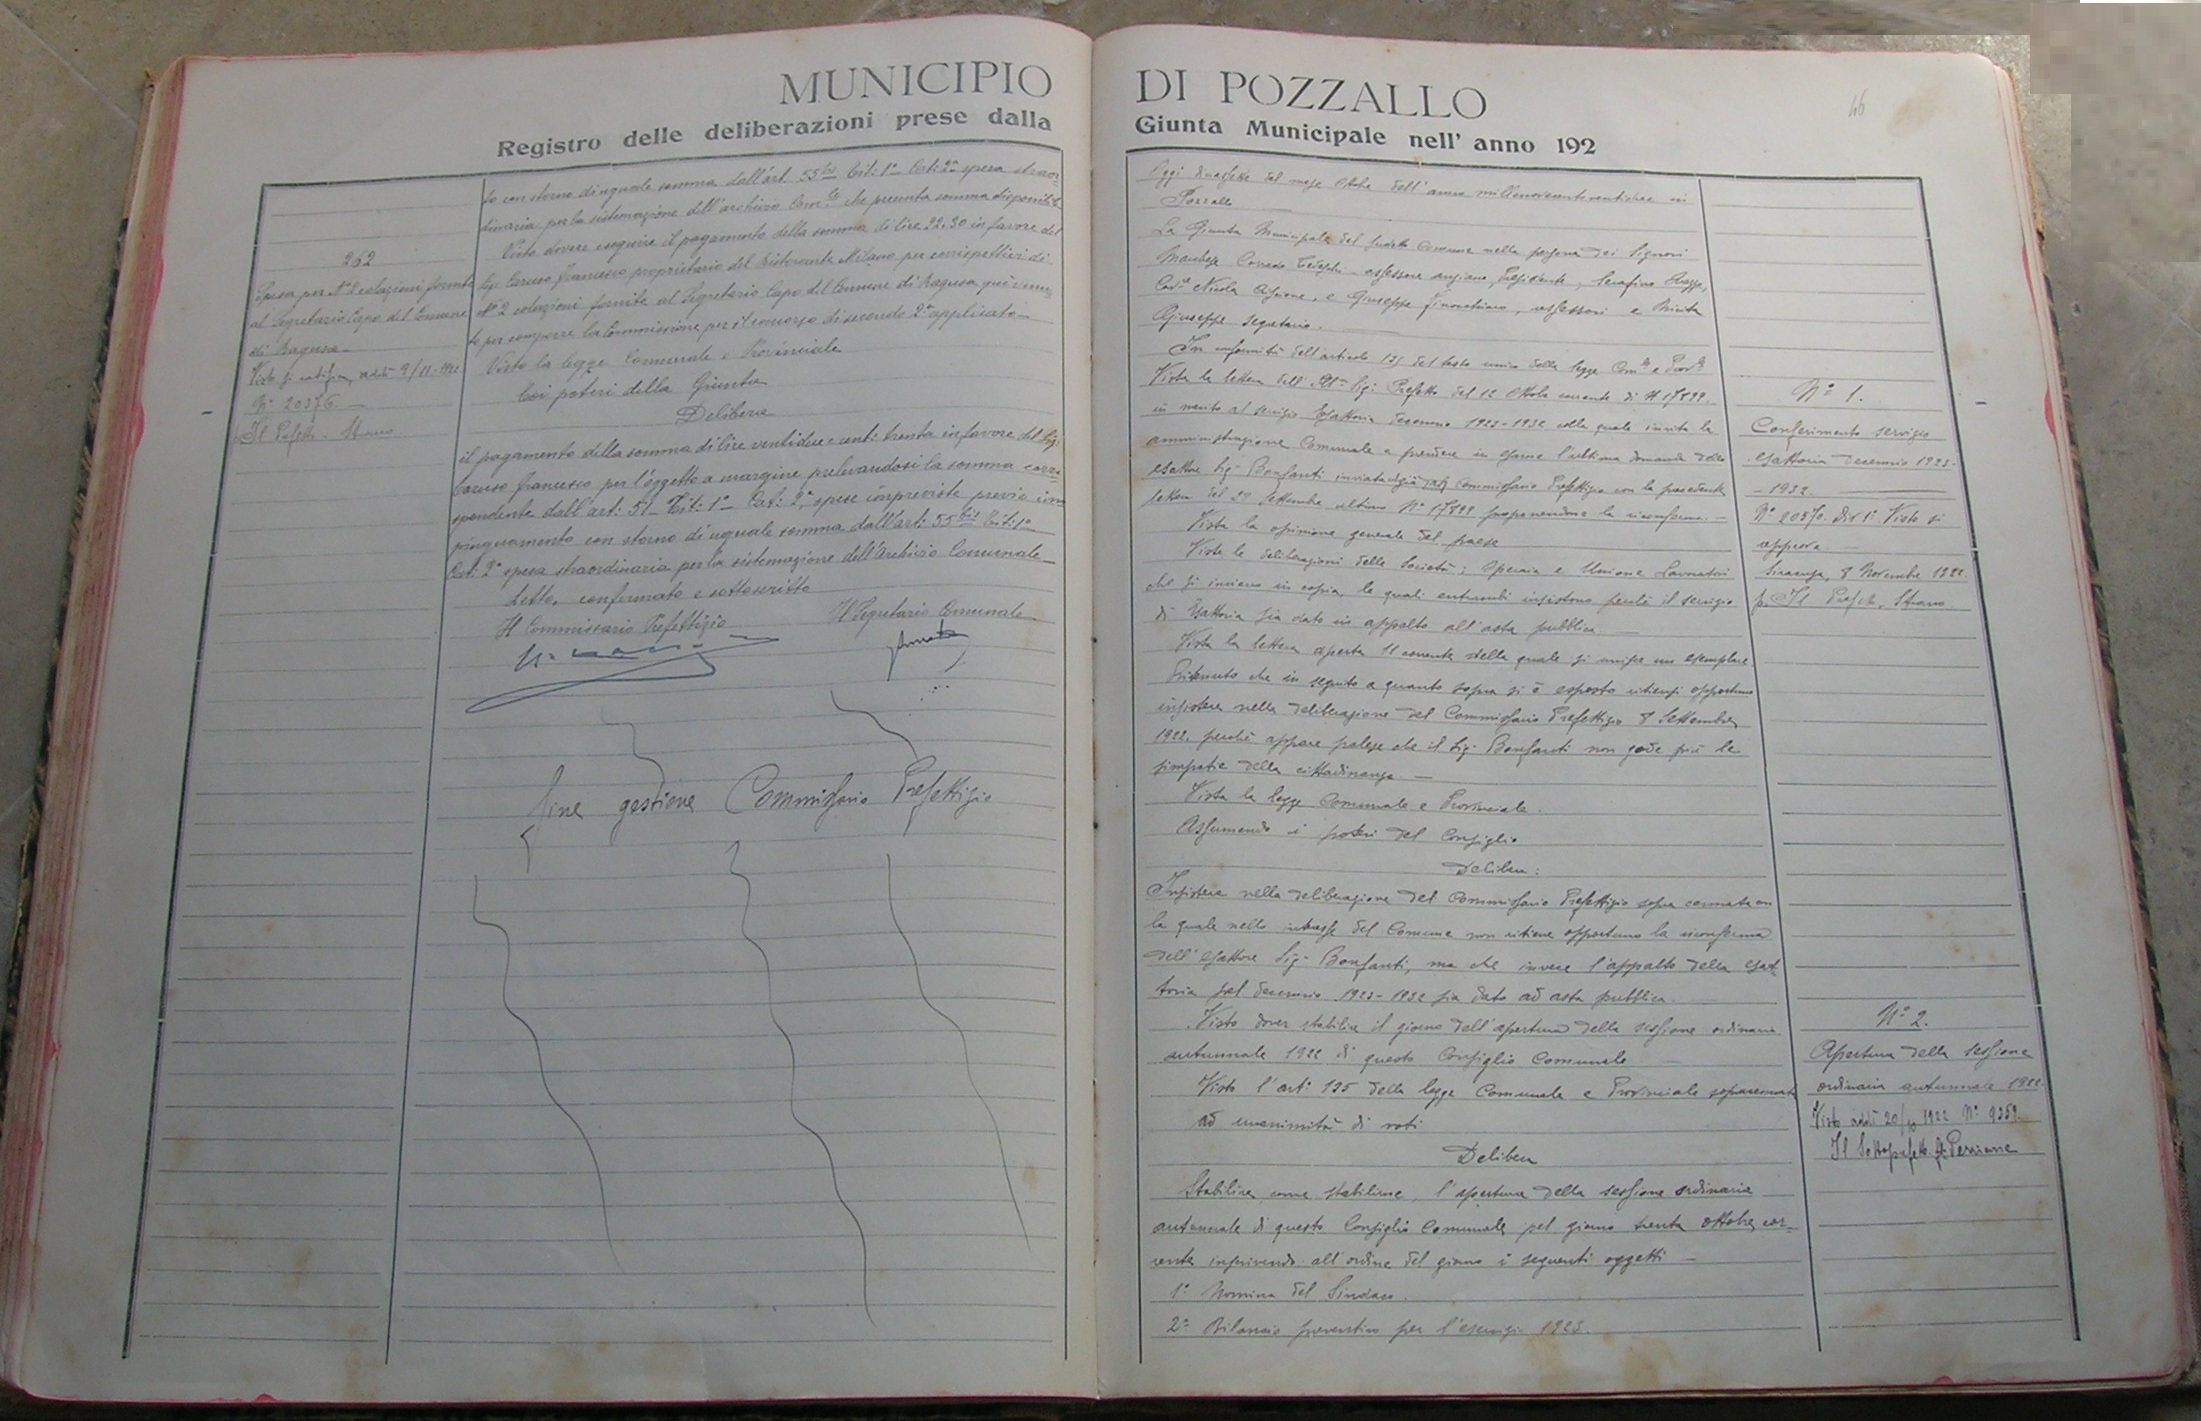 MUNICIPIO
Registro delle deliberazioni prese dalla
262
Spesa per N° 2 colazioni fornite
al Segretario Capo del Comune
di Ragusa
N° 20376.
Il Prefetto - Strano
to con storno di uguale somma dall'art. 55 bis Tit: 1° Cat: 2a spesa straor-
dinaria per la sistemazione dell'archivio Com.le che presenta somma disponibile
Visto dovere eseguire il pagamento della somma di lire 22,30 in favore del
Sig. Caruso Francesco proprietario del Ristorante Milano per corrispettivi di
N° 2 colazioni fornite al Segretario Capo del Comune di Ragusa, qui venu
to per comporre la Commissione per il concorso di secondo 2° applicato
Visto la legge Comunale e Provinciale
Coi poteri della Giunta
Delibera
il pagamento della somma di lire ventidue e cent: trenta in favore del Sig:
Caruso Francesco per l'oggetto a margine prelevandosi la somma corri-
spondente dall'art: 51 Tit: 1° Cat: 2a, spese impreviste previo im
pinguamento con storno di uguale somma dall'art: 55 bis Tit: 1°
Cat: 2a spesa straordinaria per la sistemazione dell'Archivio Comunale
Letto, confermato e sottoscritto
Il Commissario Prefettizio Il Segretario Comunale
fine gestione Commissario Prefettizio
DI POZZALLO
Giunta Municipale nell' anno 192
46
Oggi diciassette del mese Ottobre dell'anno millenovecentoventidue in
Pozzallo
La Giunta Municipale del suddetto Comune nella persona dei Signori
Corrado Tedeschi - assessore anziano, Presidente, Serafino
Cav. Nicola e Giuseppe assessori e
Giuseppe segretario.
In conformità dell'articolo 135 del testo unico della legge Com.le e Prov.le
Vista la lettera dell'Ill.mo Sig: Prefetto del 12 Ottobre corrente di N 17899
in merito al servizio Esattoria decennio 1923-1932 colla quale invita la
amministrazione Comunale a prendere in esame l'ultima domanda dello
esattore Sig. Bonfanti inviata già al Commissario Prefettizio con la precedente
lettera del 29 Settembre ultimo N° 17899 proponendone la riconferma. -
Vista la opinione generale del paese
Viste le deliberazioni delle Società: Operaia e Unione Lavoratori
che si inviano in copia, le quali entrambi insistono perchè il servizio
di Esattoria sia dato in appalto all'asta pubblica.
Vista la lettera aperta 11 corrente della quale si unisce un esemplare
Ritenuto che in seguito a quanto sopra si è esposto ritiensi opportuno
insistere nella deliberazione del Commissario Prefettizio 8 Settembre
1922, perchè appare palese che il Sig. Bonfanti non gode più le
simpatie della cittadinanza. -
Vista la legge Comunale e Provinciale.
Assumendo i poteri del Consiglio
Delibera:
Insistere nella deliberazione del Commissario Prefettizio sopra cennata con
la quale nello interesse del Comune non ritiene opportuno la riconferma
dell'esattore Sig. Bonfanti, ma che invece l'appalto della esat
toria pel decennio 1923-1932 sia dato ad asta pubblica.
Visto dover stabilire il giorno dell'apertura della sessione ordinaria
autunnale 1922 di questo Consiglio Comunale
Visto l'art: 135 della legge Comunale e Provinciale sopracennata
ad unanimità di voti
Delibera
Stabilire, come stabilisce, l'apertura della sessione ordinaria
autunnale di questo Consiglio Comunale pel giorno trenta ottobre cor-
rente inscrivendo all'ordine del giorno i seguenti oggetti -
1° Nomina del Sindaco.
2° Bilancio preventivo per l'esercizio 1923.
N° 1.
Conferimento servizio
esattoria decennio 1923-
- 1932.
N° 20370. Div 1a Visto si
approva.
Siracusa, 8 Novembre 1922.
p. Il Prefetto, Strano.
N° 2.
Apertura della sessione
ordinaria autunnale 1922.
Visto addì 20/10 1922 N° 9359.
Il Sottoprefetto